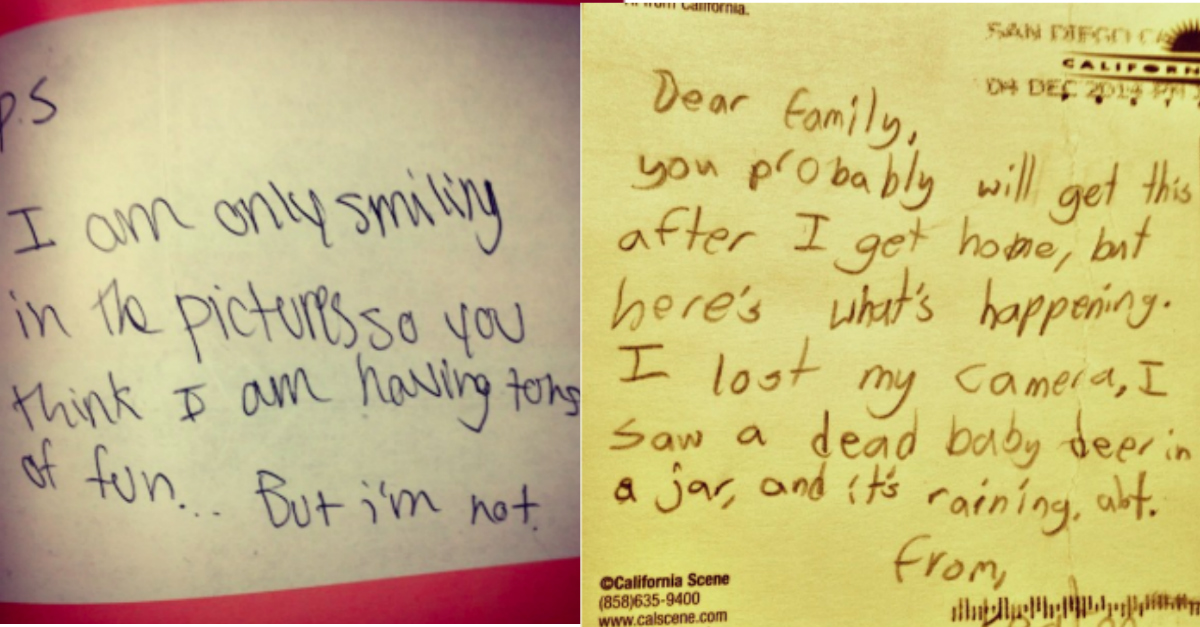 P.S
I am only smiling
in the pictures so you
think I am having tons
of fun... But i'm not.
from California.
SAN DIEGO CA
CALIFORN
04 DEC 2014 PM
Dear family,
you probably will get this
after I get home, but
here's what's happening.
I lost my camera, I
saw a dead baby deer in
a jar, and it's raining, alot.
from,
©California Scene
(858)635-9400
www.calscene.com